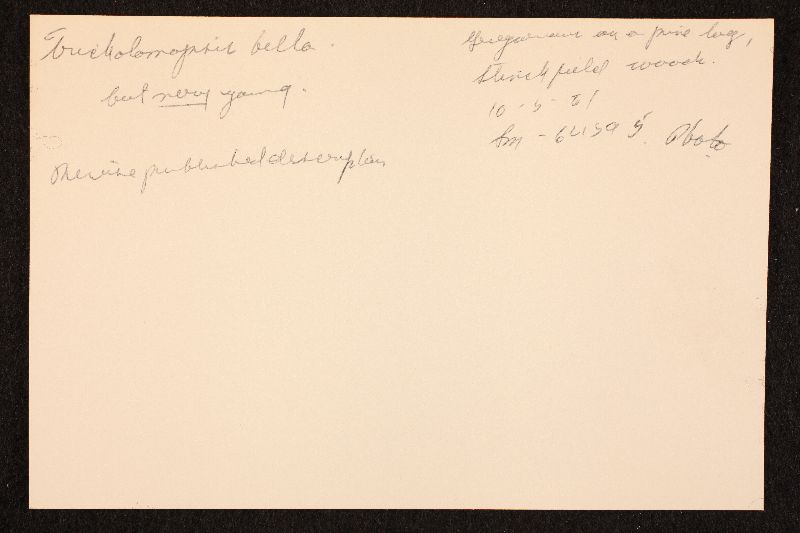 Tricholomopsis bella.
but very young.
Revise published description
Gregarious on a pine log,
Stinchfield woods.
10-5-81
Sm - 64595 Photo